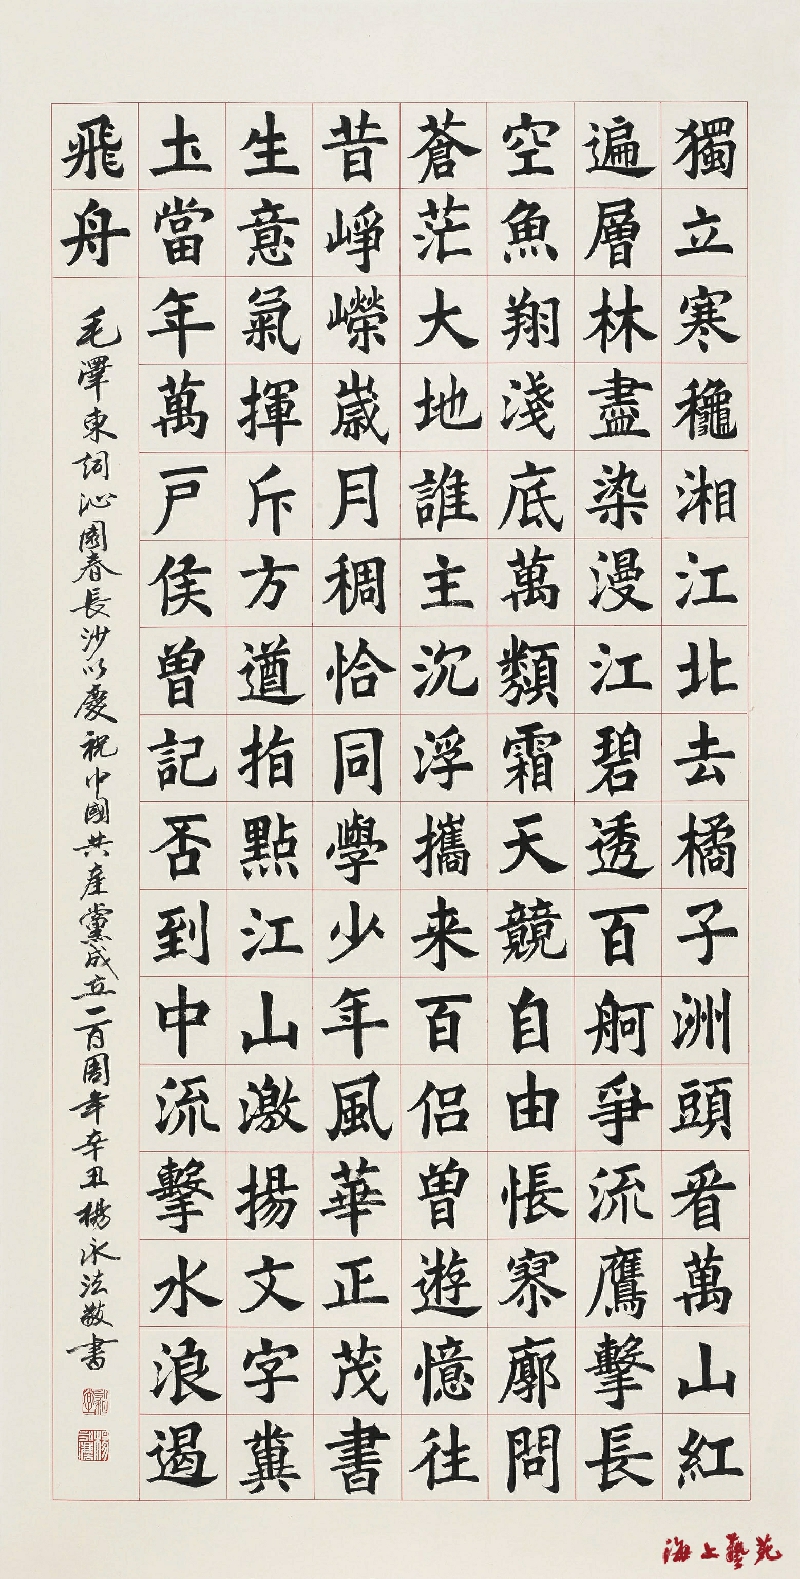 獨立寒龝湘江北去橘子洲頭看萬山紅
遍層林盡染漫江碧透百舸爭流鷹擊長
空魚翔淺底萬類霜天競自由悵寥廓問
蒼茫大地誰主沉浮攜来百侣曾遊憶往
昔崢嶸歲月稠恰同學少年風華正茂書
生意氣揮斥方遒指點江山激揚文字糞
土當年萬戶侯曾記否到中流擊水浪遏
飛舟
毛澤東詞沁園春長沙以慶祝中國共產黨成立一百周年辛丑楊永法敬書
海上藝苑